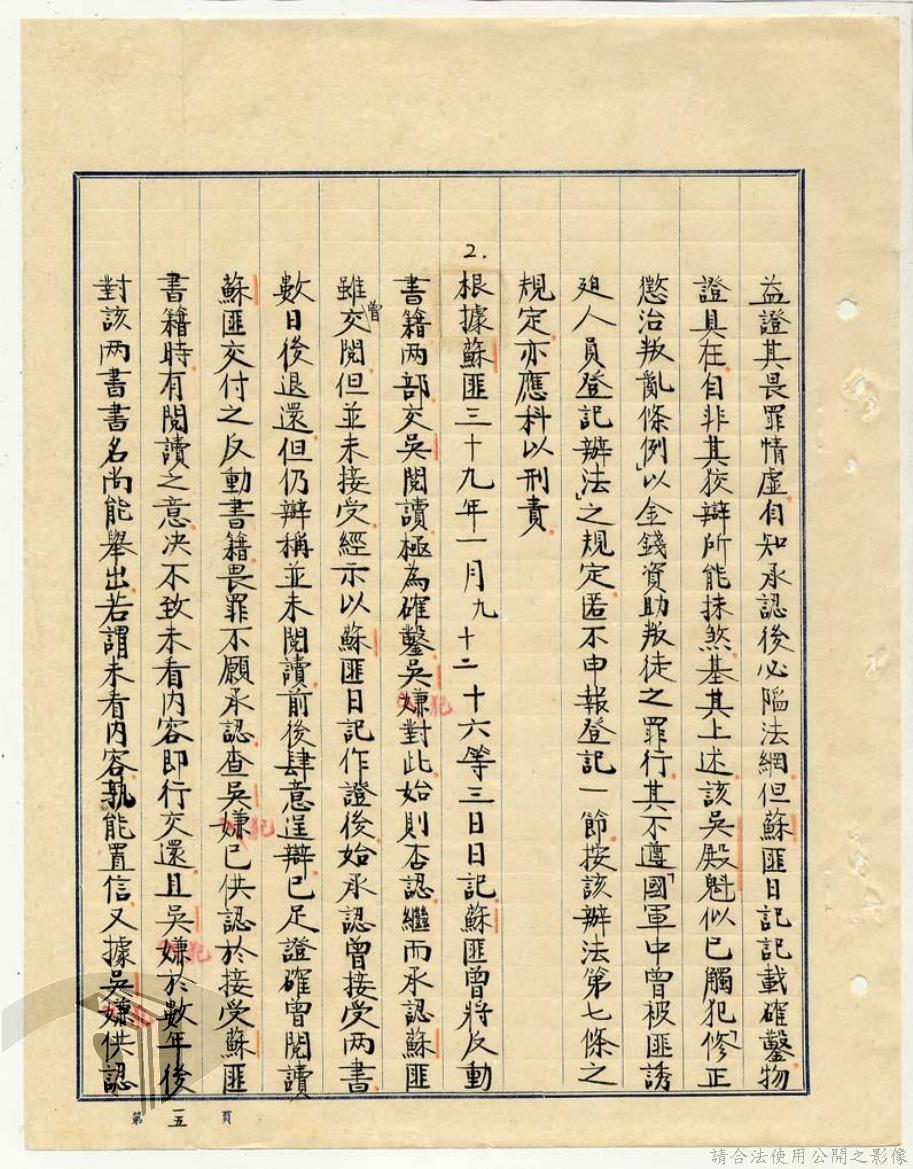 益證其畏罪情虛自知承認後必陷法網但蘇匪日記記載確鑿物
證具在自非其狡辯所能抹煞基其上述該吳殿魁似已觸犯「修正
懲治叛亂條例」以金錢資助叛徒之罪行其不遵「國軍中曾被匪誘
廹人員登記辦法」之規定匿不申報登記一節按該辦法第七條之
規定亦應科以刑責
2.根據蘇匪三十九年一月九十二十六等三日日記蘇匪曾將反動
書籍两部交吳閱讀極為確鑿吳嫌對此始則否認繼而承認蘇匪
雖曾交閱但並未接受經示以蘇匪日記作證後始承認曾接受两書
數日後退還但仍辯稱並未閱讀前後肆意逞辯已足證確曾閱讀
蘇匪交付之反動書籍畏罪不願承認查吳嫌已供認於接受蘇匪
書籍時有閱讀之意决不致未看內容即行交還且吳嫌於數年後
對該两書書名尚能舉出若謂未看內容孰能置信又據吳嫌供認
第一五頁
請合法使用公開之影像